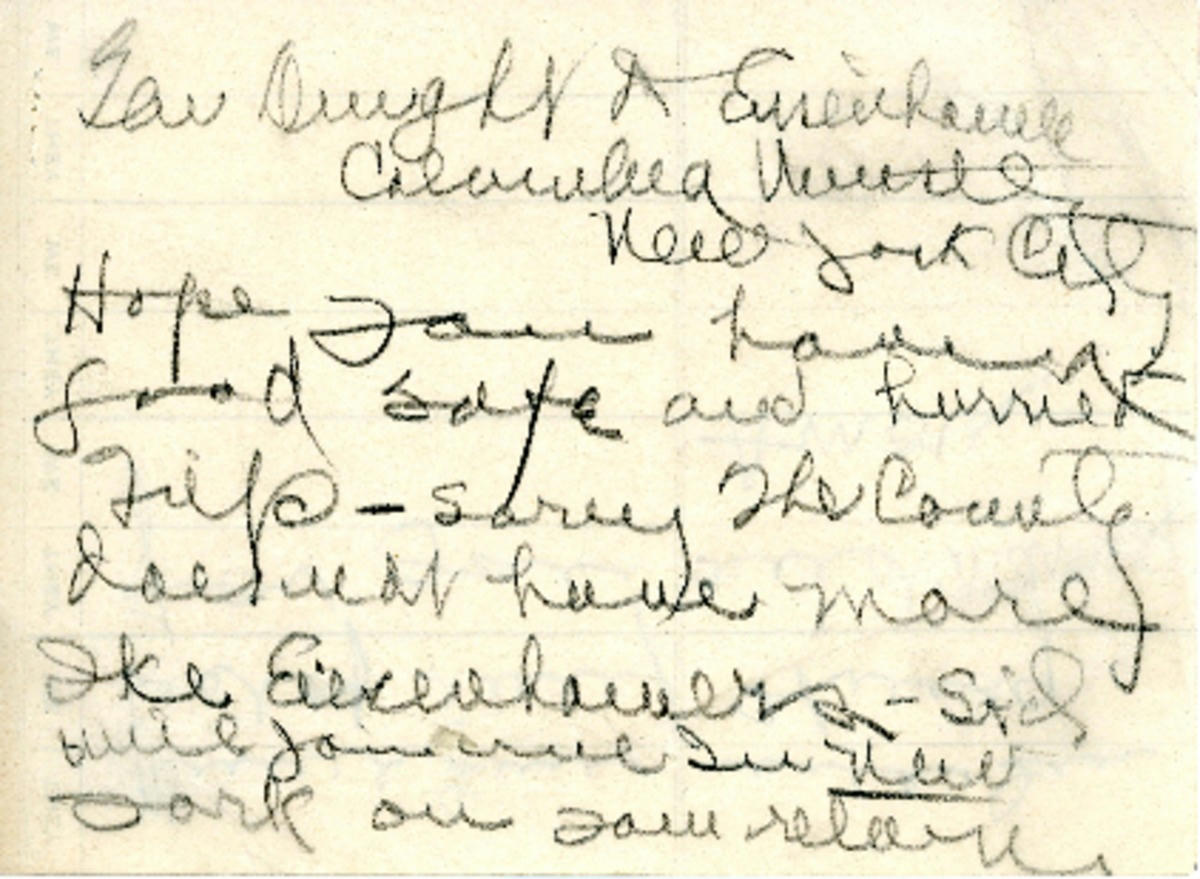 Gen Dwight D Eisenhower
Columbia Universi
New York City
Hope you have a
good safe and hurried
Trip - sorry The County
does not have more
Ike Eisenhowers - Sid
will join me In New
York on your return